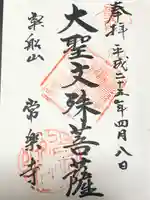 奉拝
平成二十五年四月八日
大聖文殊菩薩
常楽寺